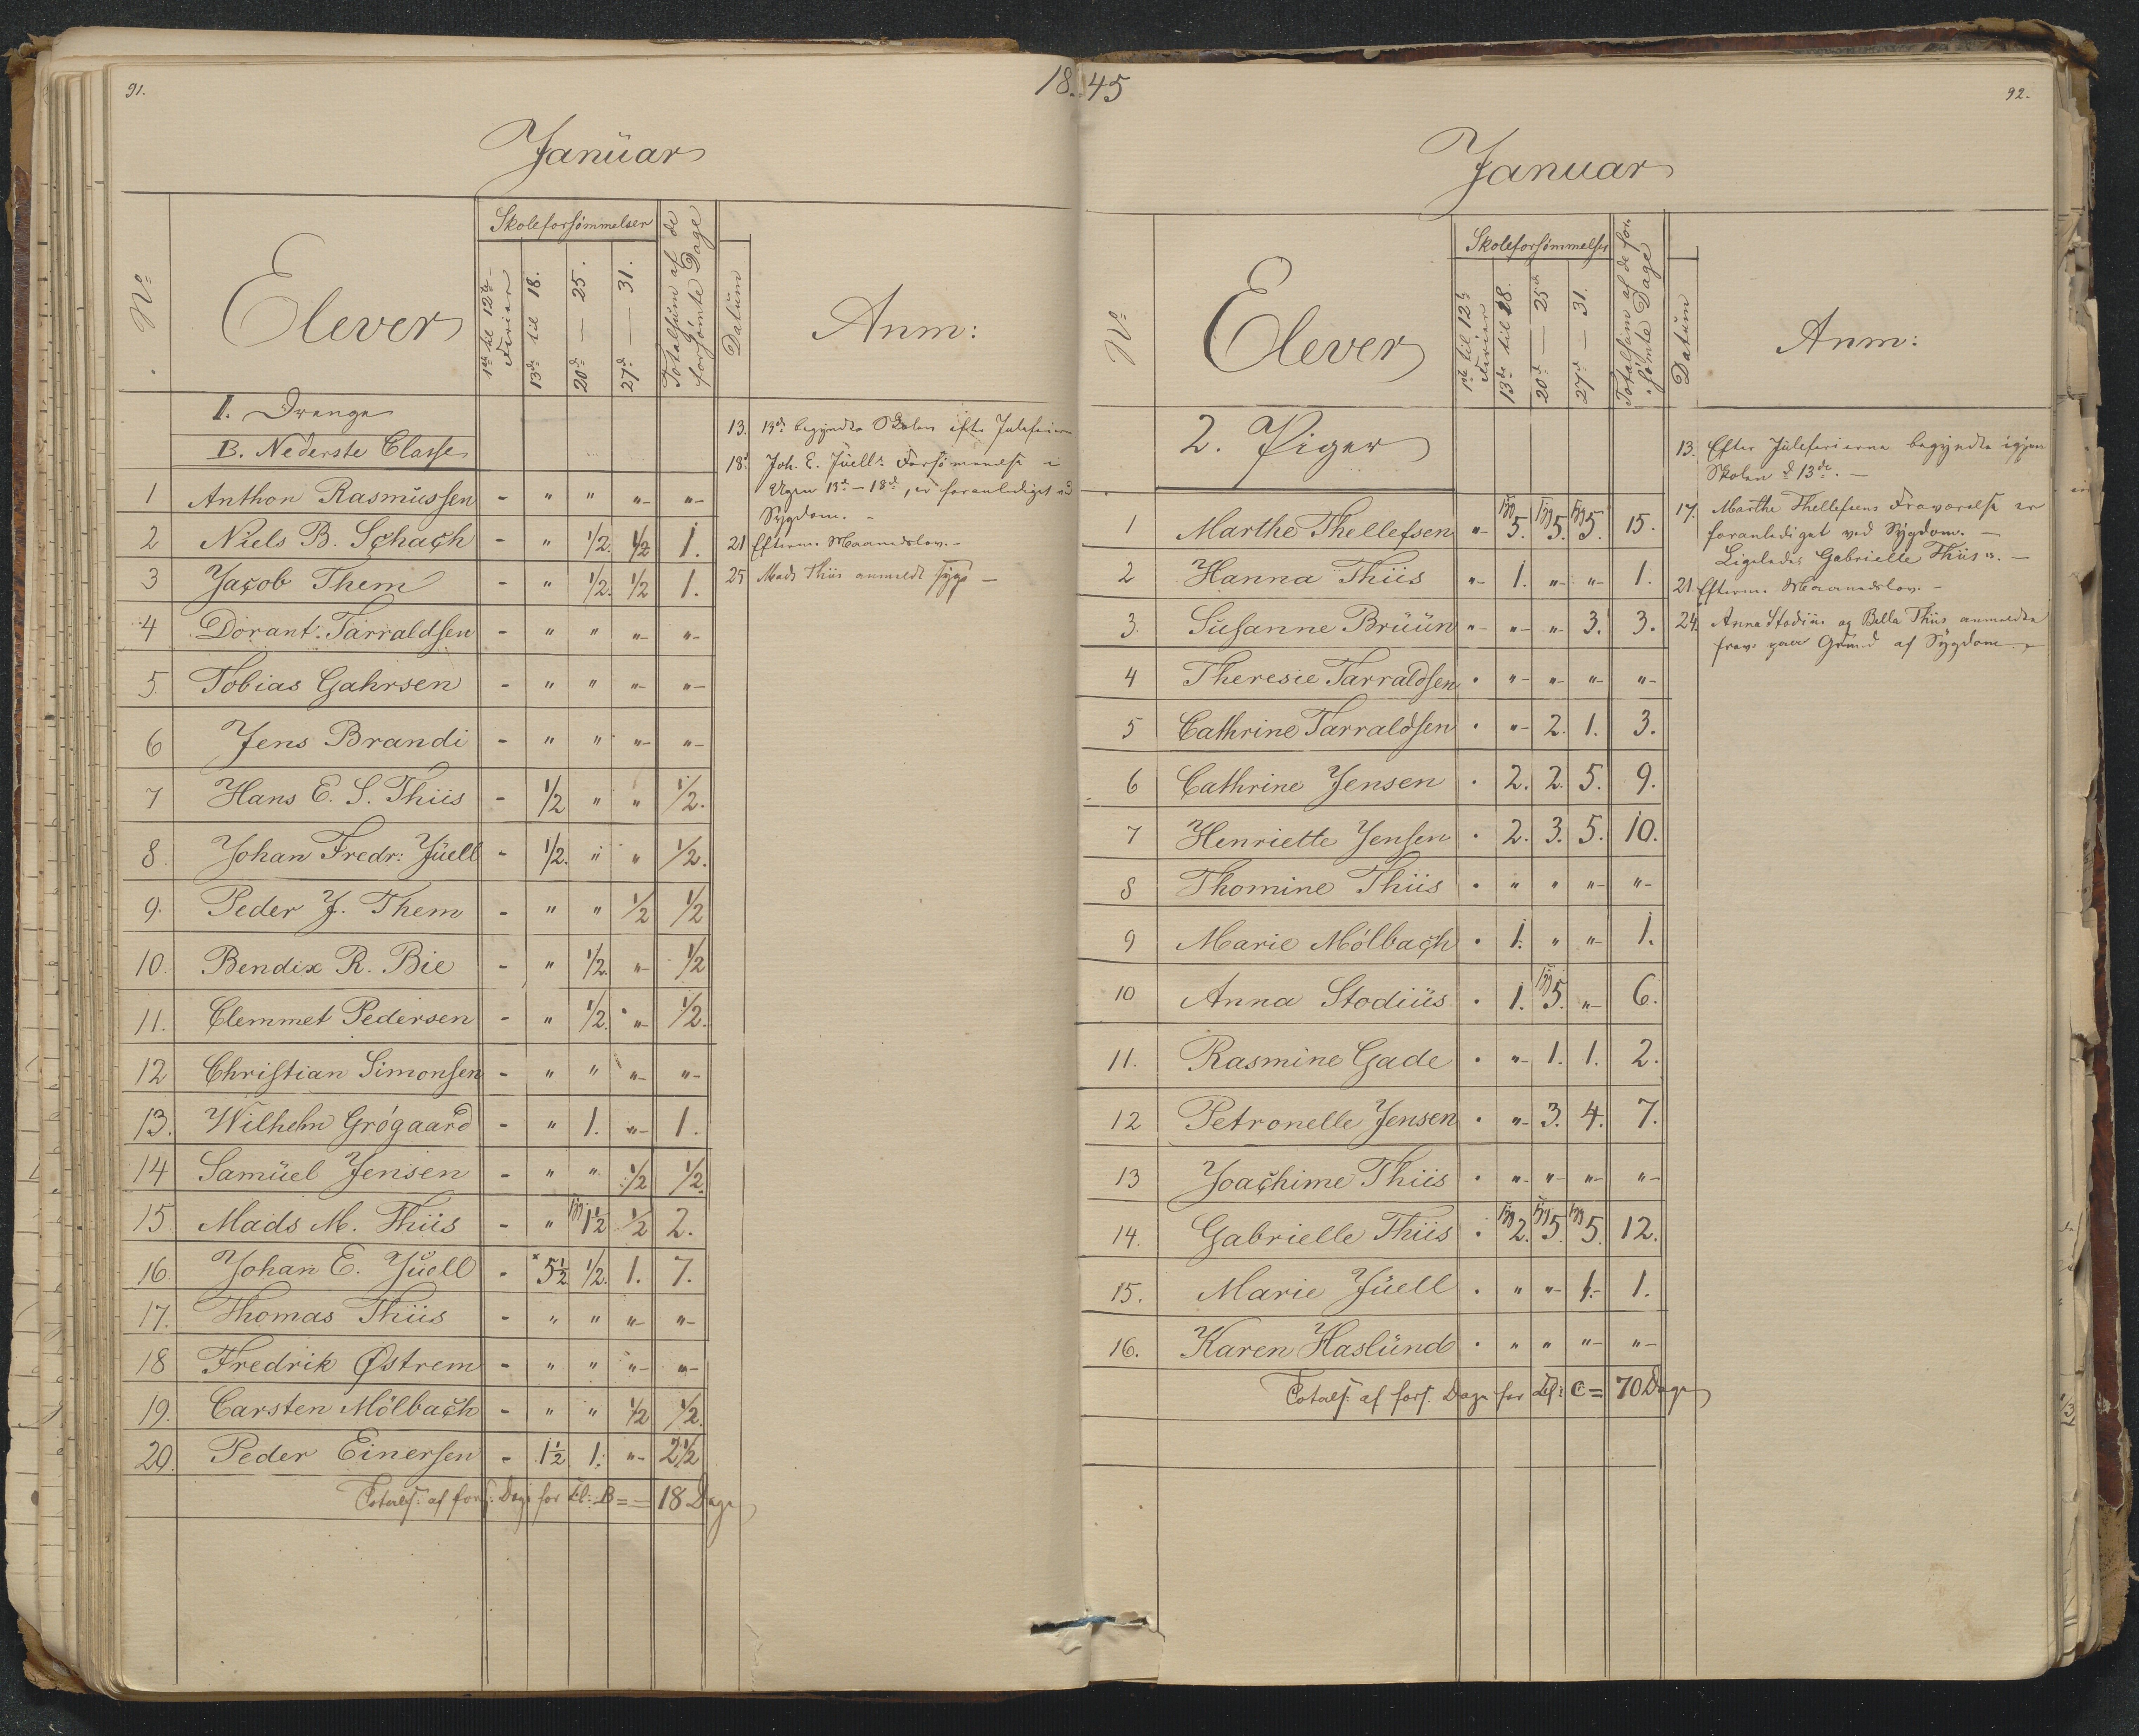 91.
18 45
Januar
N°
Elever
Skoleforsömmelser
1ste til 12te Ferier
13de til 18.
20de — 25.
27de — 31.
Totalsum af de forsömte Dage
Datum
Anm:
1. Drenge
B. Nederste Classe
1 Anthon Rasmussen - " " "- "-
2 Niels B. Schach - " 1/2. 1/2 1.
3 Jacob Them - " 1/2. 1/2 1.
4 Dorant. Tarraldsen - " " "- "-
5. Tobias Gahrsen - " " "- "-
6 Jens Brandi - " " "- "-
7 Hans E. S. Thiis - 1/2 " " 1/2.
8. Johan Fredr: Juell - 1/2. " " 1/2.
9. Peder J. Them - " " 1/2 1/2
10. Bendix R. Bie - " 1/2. "- 1/2
11. Clemmet Pedersen - " 1/2. "- 1/2.
12 Christian Simonsen - " " "- "-
13. Wilhelm Grögaard - " 1. "- 1.
14 Samuel Jensen - " " 1/2 1/2.
15 Mads M. Thiis - " syg 1 1/2 1/2 2.
16 Johan E. Juell - × 5 1/2 1/2. 1. 7.
17. Thomas Thiis - " " "- "-
18 Fredrik Østrem - " " "- "-
19. Carsten Mölbach - " " 1/2 1/2.
20. Peder Einersen - 1 1/2 1. "- 2 1/2
Totals: af fors: Dage for Cl: B = = 18 Dage
13. 13de begyndte Skolen efter Juleferien
18. Joh. E. Juells Forsömmelse i
Ugen 13de – 18de, er foranlediget ved
Sygdom. –
21 Efterm. Maanedslov. –
25 Mads Thiis anmeldt syg –
92.
Januar
N°
Elever
Skoleforsömmelser
1ste til 12te Ferier
13de til 18.
20de — 25de
27de — 31.
Totalsum af de forsömte Dage
Datum
Anm:
2. Piger
1 Marthe Thellefsen "- syg 5. syg 5. syg 5. 15.
2 Hanna Thiis "- 1. "- "- 1.
3. Susanne Bruun "- "- "- 3. 3.
4 Theresie Tarraldsen . "- "- "- "-
5 Cathrine Tarraldsen . "- 2. 1. 3.
6 Cathrine Jensen . 2. 2. 5. 9.
7 Henriette Jensen . 2. 3. 5. 10.
8 Thomine Thiis . " " "- "-
9 Marie Mölbach . 1. " "- 1.
10 Anna Stodius . 1. syg 5. "- 6.
11. Rasmine Gade . "- 1. 1. 2.
12 Petronelle Jensen . "- 3. 4. 7.
13 Joachime Thiis . "- "- "- "-
14. Gabrielle Thiis . syg 2. syg 5. syg 5. 12.
15. Marie Juell . " "- 1.- 1.
16. Karen Haslund . " " "- "-
Totals: af fors. Dage for Cl: C = 70 Dage
13. Efter Juleferierne begyndte igjen
Skolen d. 13de. –
17. Marthe Thellefsens Fraværelse er
foranlediget ved Sygdom. –
Ligeledes Gabrielle Thiis's. –
21. Efterm. Maanedslov. –
24. Anna Stodius og Bella Thiis anmeldte
frav. paa Grund af Sygdom. –